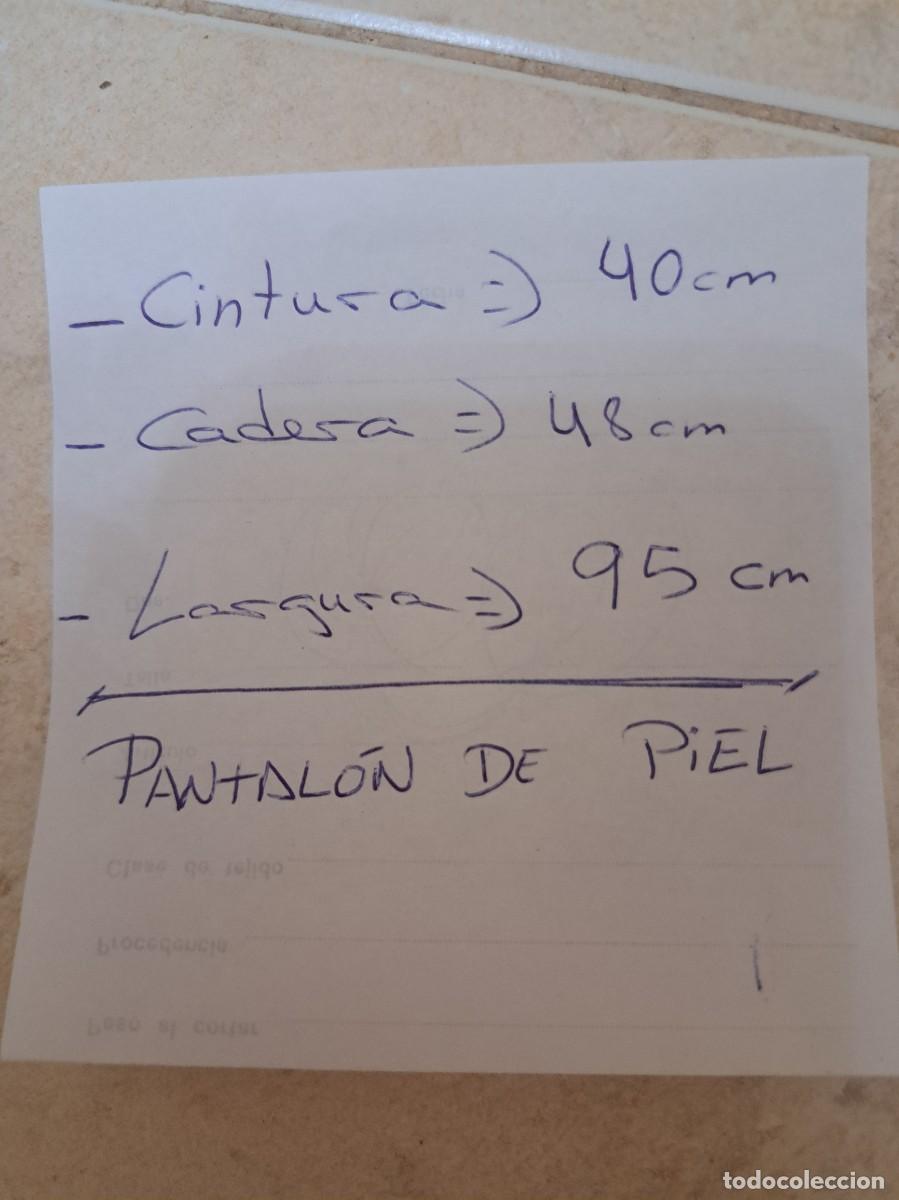 - Cintura => 40cm
- Cadera => 48cm
- Largura => 95 cm
PANTALÓN DE PIEL
Talla
Clase de tejido
Procedencia
Paso al cortar
todocoleccion